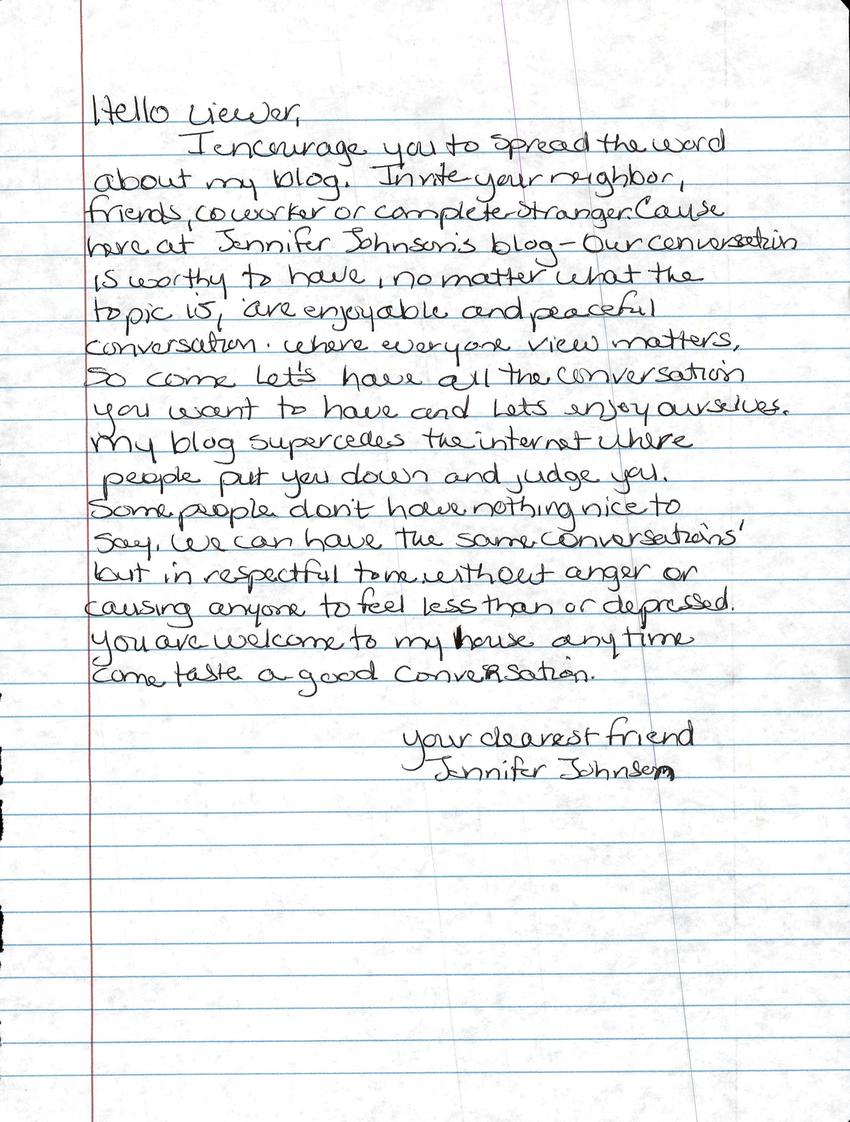 Hello Viewer,
I encourage you to spread the word
about my blog. Invite your neighbor,
friends, coworker or complete stranger. Cause
here at Jennifer Johnson's blog - Our conversation
is worthy to have, no matter what the
topic is, are enjoyable and peaceful
conversation. where everyone view matters,
So come Let's have all the conversation
you want to have and Lets enjoy ourselves.
my blog supercedes the internet where
people put you down and judge you.
Some people don't have nothing nice to
say. We can have the same conversations'
but in respectful tone without anger or
causing anyone to feel less than or depressed.
you are welcome to my house anytime
come taste a good conveRsation.
your dearest friend
Jennifer Johnson